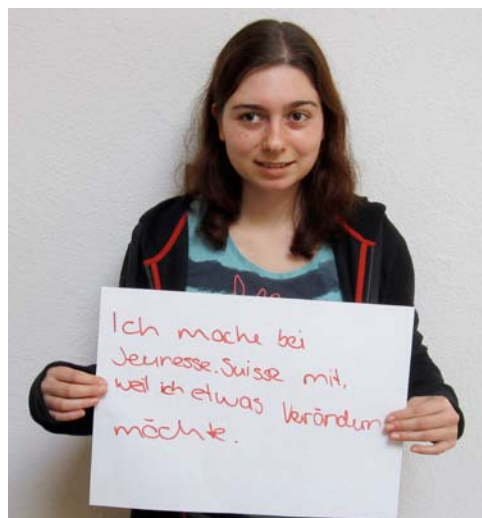 Ich mache bei
Jeunesse.Suisse mit,
weil ich etwas Verändern
möchte.